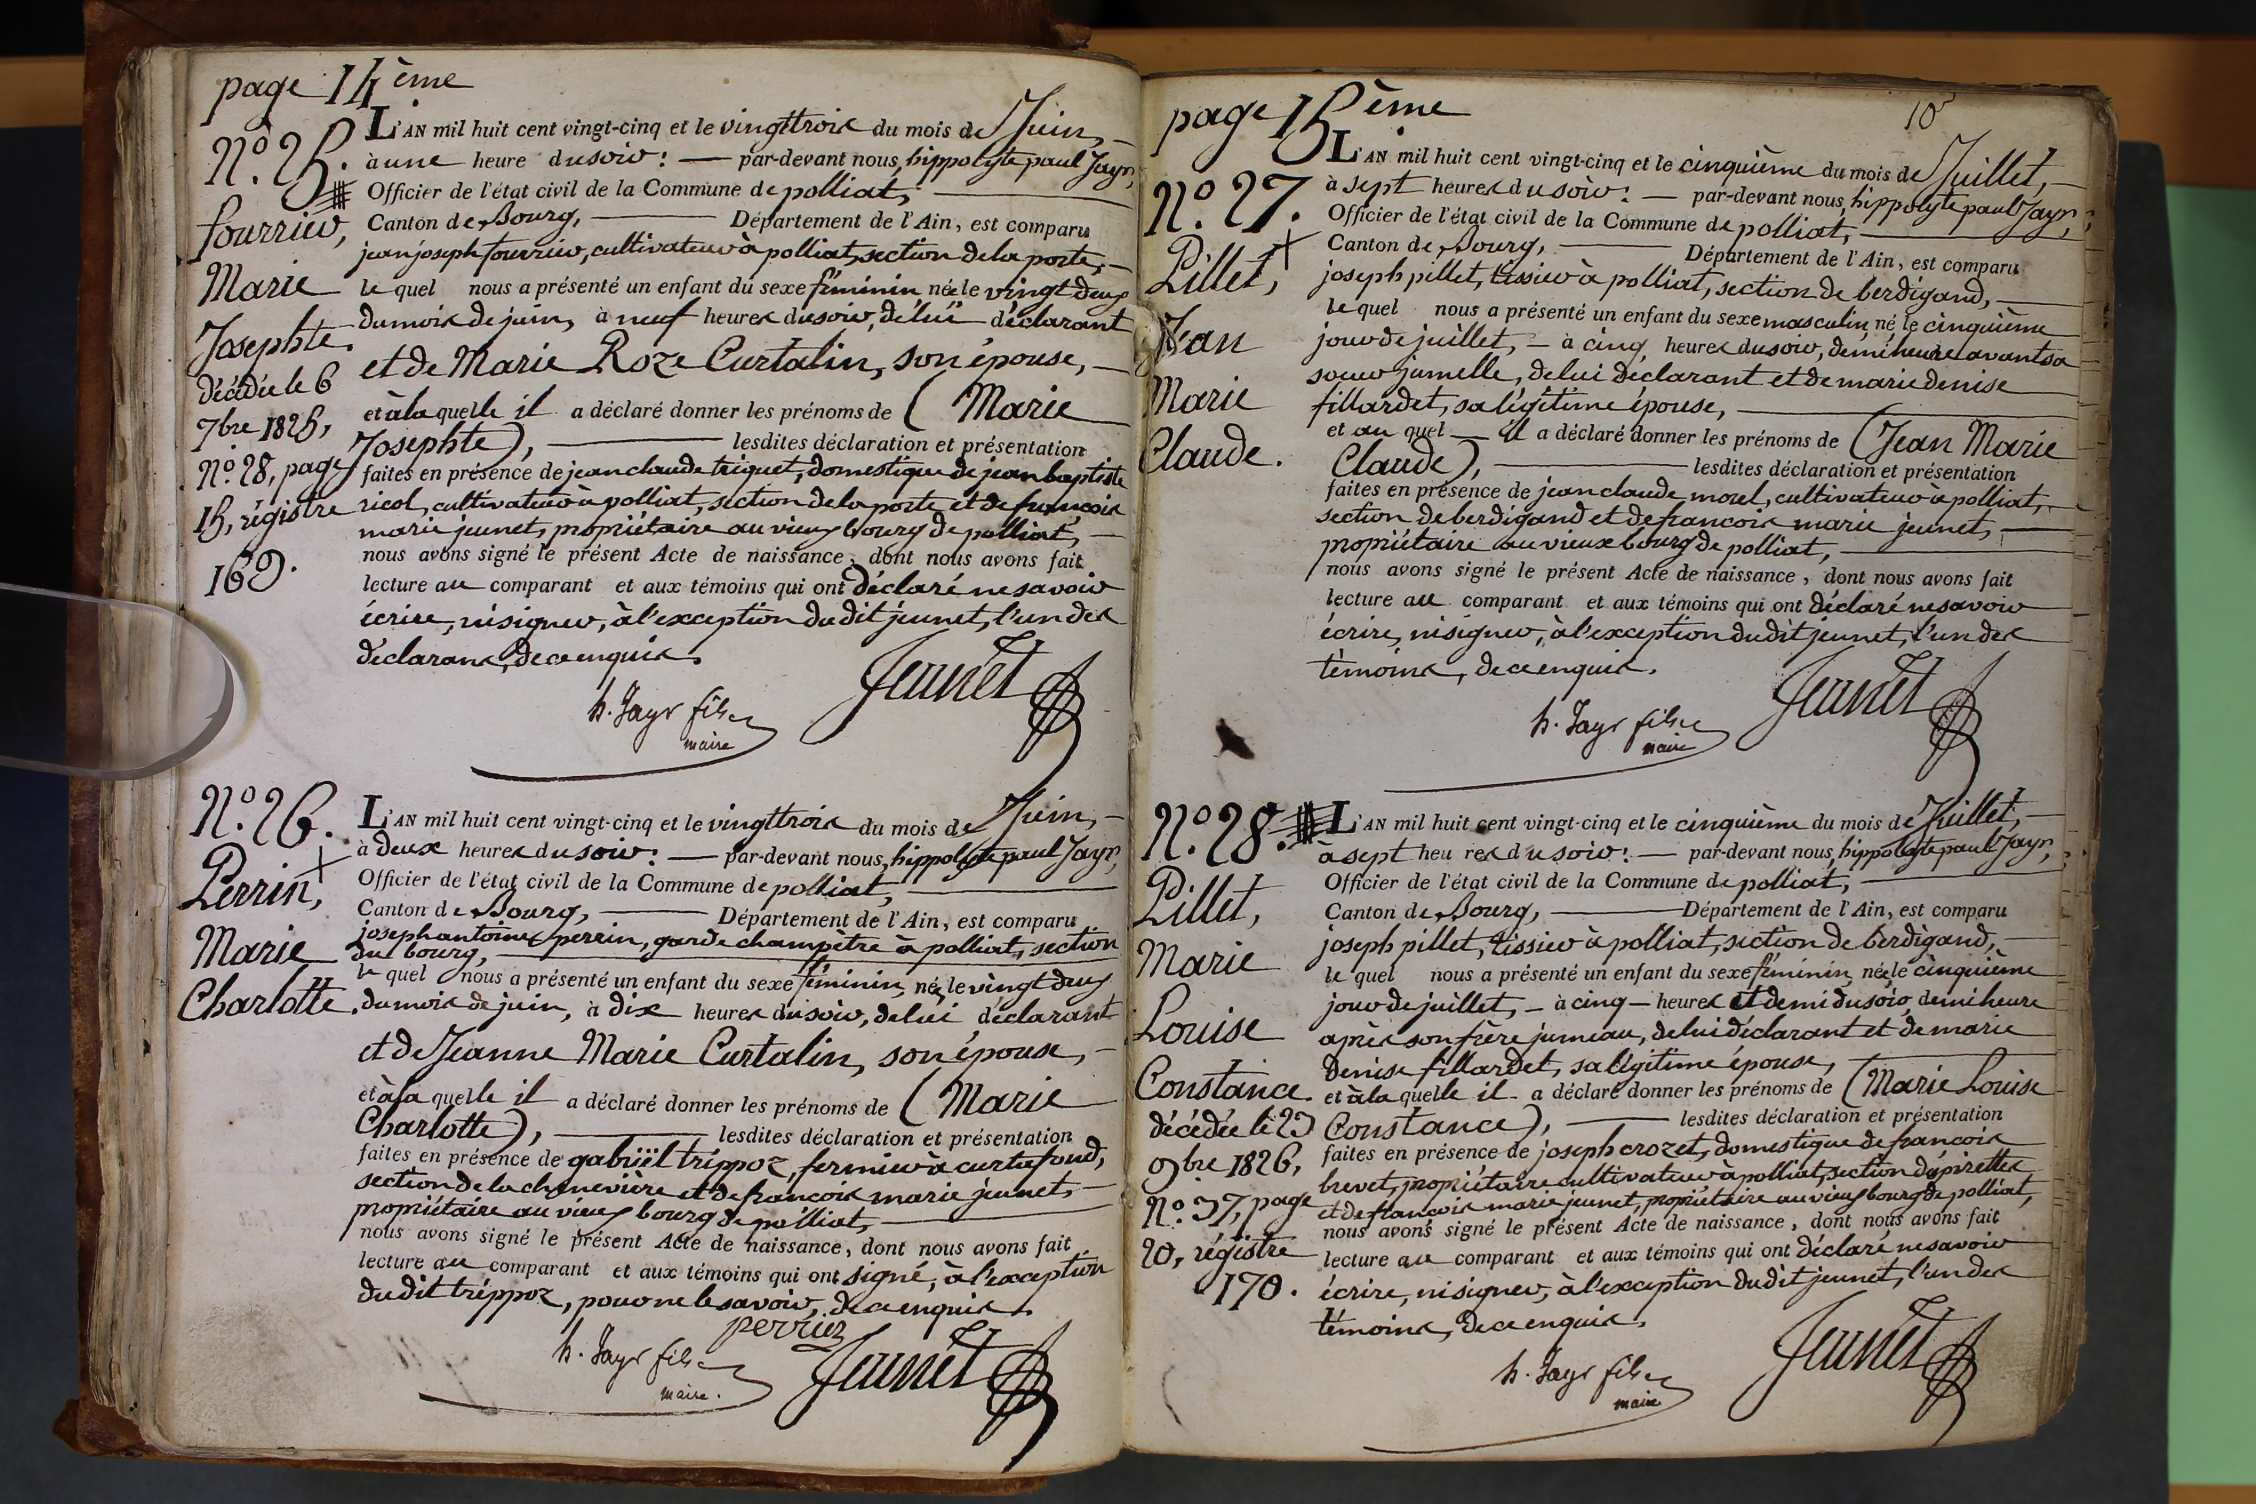 page 14ème
N° 25.
fourrier,
Marie
Josephte.
décédée le 6
7bre 1825,
N° 28, page
15, régistre
169.
L'AN mil huit cent vingt-cinq et le vingttrois du mois de Juin,
à une heure du soir: — par-devant nous, hippolyte paul Jayr,
Officier de l'état civil de la Commune de polliat,
Canton de Bourg, — Département de l'Ain, est comparu
jean joseph fourrier, cultivateur à polliat, section de la poste,
le quel nous a présenté un enfant du sexe féminin née le vingt deux
du mois de juin, à neuf heures du soir, de lui déclarant
et de Marie Roze Curtalin, son épouse,
et à la quelle il a déclaré donner les prénoms de (Marie
Josephte), — lesdites déclaration et présentation
faites en présence de jean claude triquet, domestique de jean baptiste
ricol, cultivateur à polliat, section de la poste et de françois
marie jeunet, propriétaire au vieux bourg de polliat,
nous avons signé le présent Acte de naissance, dont nous avons fait
lecture au comparant et aux témoins qui ont déclaré ne savoir
écrire, ni signer, à l'exception du dit jeunet, l'un des
déclarans, de ce enquis.
h. Jayr fils
maire
Jeunet
N° 26.
Perrin,
Marie
Charlotte.
L'AN mil huit cent vingt-cinq et le vingttrois du mois de Juin,
à deux heures du soir: — par-devant nous, hippolyte paul Jayr,
Officier de l'état civil de la Commune de polliat,
Canton de Bourg, — Département de l'Ain, est comparu
joseph antoine perrin, garde champêtre à polliat, section
du bourg,
le quel nous a présenté un enfant du sexe féminin, née le vingt deux
du mois de juin, à dix heures du soir, de lui déclarant
et de Jeanne Marie Curtalin, son épouse,
et à la quelle il a déclaré donner les prénoms de (Marie
Charlotte), — lesdites déclaration et présentation
faites en présence de gabriël tréppoz, fermier à curtafond,
section de la chenevière et de françois marie jeunet,
propriétaire au vieux bourg de polliat,
nous avons signé le présent Acte de naissance, dont nous avons fait
lecture au comparant et aux témoins qui ont signé, à l'exception
du dit tréppoz, pour ne le savoir, de ce enquis.
perrin
h. Jayr fils
maire.
Jeunet
page 15ème
N° 27.
Pillet,
Jean
Marie
Claude.
L'AN mil huit cent vingt-cinq et le cinquième du mois de Juillet,
à sept heures du soir: — par-devant nous, hippolyte paul Jayr,
Officier de l'état civil de la Commune de polliat,
Canton de Bourg, — Département de l'Ain, est comparu
joseph pillet, tissier à polliat, section de berdigand,
le quel nous a présenté un enfant du sexe masculin, né le cinquième
jour de juillet, — à cinq heures du soir, demi heure avant sa
soeur jumelle, de lui déclarant et de marie denise
fillardet, sa légitime épouse,
et au quel — il a déclaré donner les prénoms de (Jean Marie
Claude), — lesdites déclaration et présentation
faites en présence de jean claude morel, cultivateur à polliat,
section de berdigand et de francois marie jeunet,
propriétaire au vieux bourg de polliat,
nous avons signé le présent Acte de naissance, dont nous avons fait
lecture au comparant et aux témoins qui ont déclaré ne savoir
écrire, ni signer, à l'exception du dit jeunet, l'un des
témoins, de ce enquis.
h. Jayr fils
maire
Jeunet
N° 28.
Pillet,
Marie
Louise
Constance.
décédée le 23
9bre 1826,
N° 37, page
20, régistre
170.
L'AN mil huit cent vingt-cinq et le cinquième du mois de Juillet,
à sept heures du soir: — par-devant nous, hippolyte paul Jayr,
Officier de l'état civil de la Commune de polliat,
Canton de Bourg, — Département de l'Ain, est comparu
joseph pillet, tissier à polliat, section de berdigand,
le quel nous a présenté un enfant du sexe féminin, née le cinquième
jour de juillet, — à cinq — heures et demi du soir, demi heure
après son frère jumeau, de lui déclarant et de marie
denise fillardet, sa légitime épouse,
et à la quelle il a déclaré donner les prénoms de (Marie Louise
Constance), — lesdites déclaration et présentation
faites en présence de joseph crozet, domestique de francois
brevet, propriétaire cultivateur à polliat, section
et de francois marie jeunet, propriétaire au vieux bourg de polliat,
nous avons signé le présent Acte de naissance, dont nous avons fait
lecture au comparant et aux témoins qui ont déclaré ne savoir
écrire, ni signer, à l'exception du dit jeunet, l'un des
témoins, de ce enquis.
h. Jayr fils
maire
Jeunet